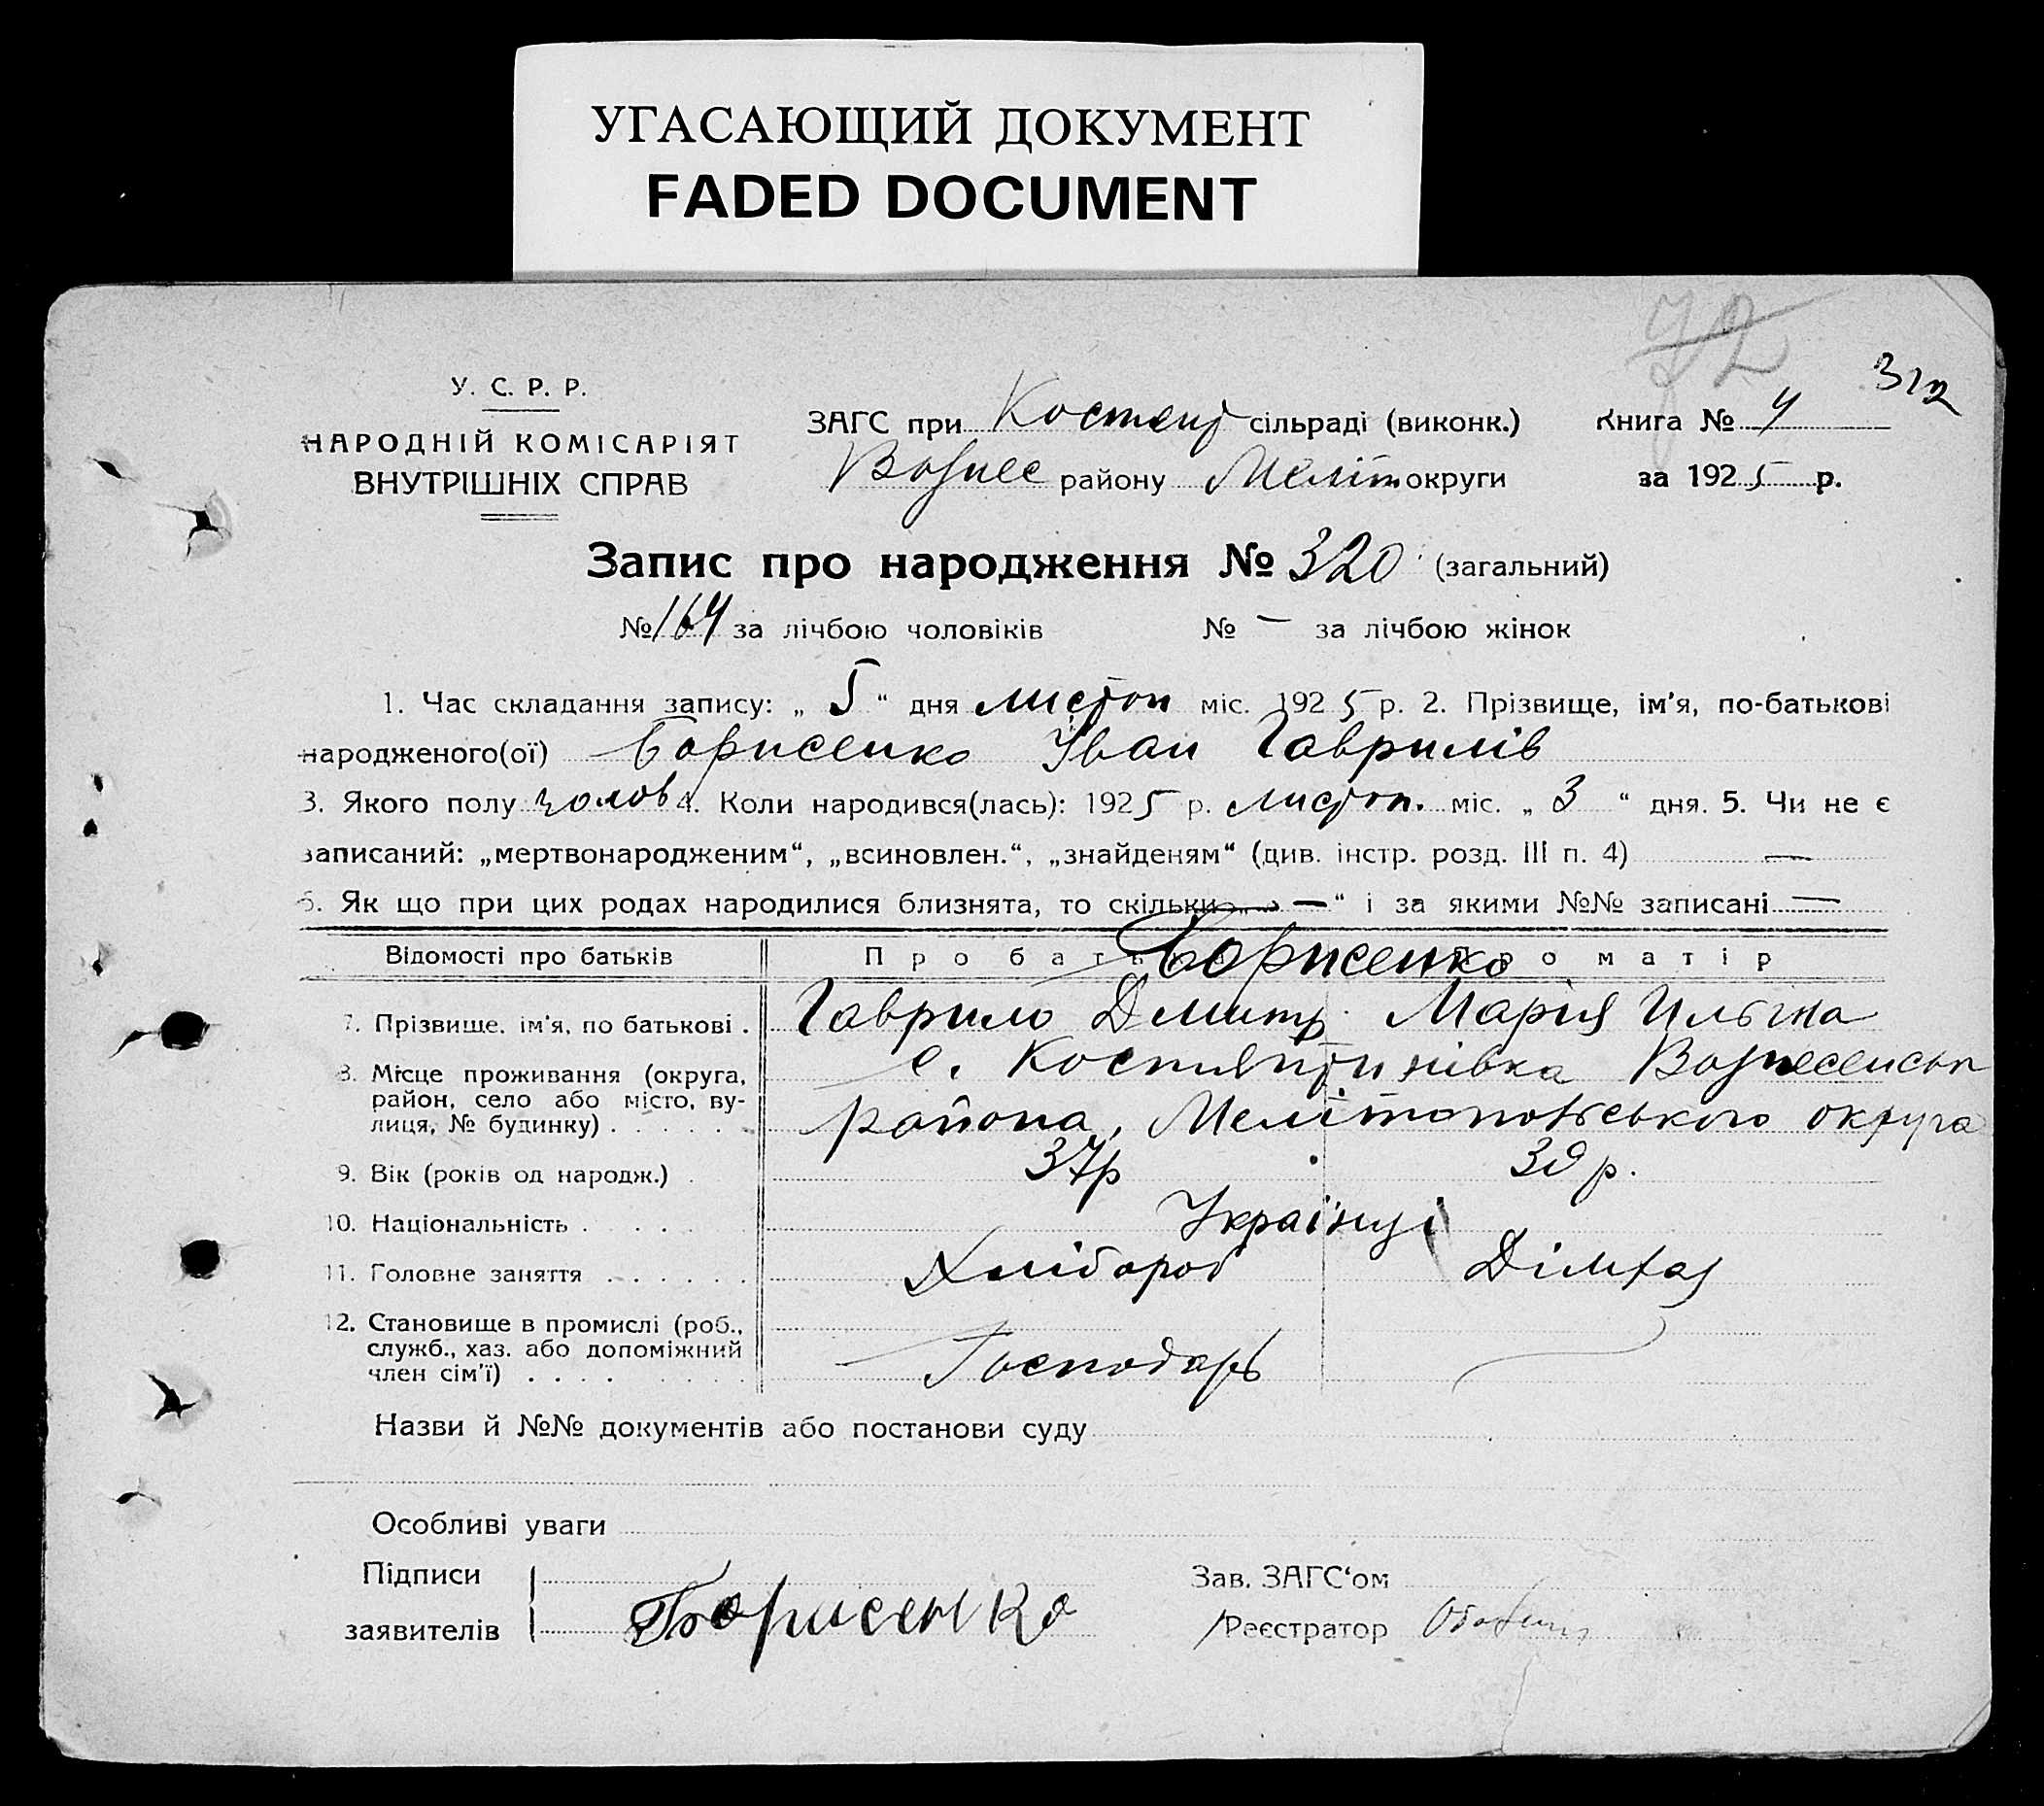 УГАСАЮЩИЙ ДОКУМЕНТ
FADED DOCUMENT
72
312
У. С. Р. Р.
НАРОДНІЙ КОМІСАРІЯТ
ВНУТРІШНІХ СПРАВ
ЗАГС при Костянт сільраді (виконк.) Книга № 4
Вознес району Меліт округи за 1925 р.
Запис про народження № 320 (загальний)
№ 164 за лічбою чоловіків № — за лічбою жінок
1. Час складання запису: „ 5 “ дня листоп міс. 1925 р. 2. Прізвище, ім'я, по-батькові
народженого(ої) Борисенко Іван Гаврилів
3. Якого полу чолов 4. Коли народився(лась): 1925 р. листоп. міс. „ 3 “ дня. 5. Чи не є
записаний: „мертвонародженим“, „всиновлен.“, „знайденям“ (див. інстр. розд. III п. 4) —
6. Як що при цих родах народилися близнята, то скільки „ — “ і за якими №№ записані —
Відомості про батьків Про батька Про матір
Борисенко
7. Прізвище, ім'я, по батькові . Гаврило Дмитр. Марія Ильіна
8. Місце проживання (округа, район, село або місто, вулиця, № будинку) . . . . . с. Костянтинівка Вознесенськ
района, Мелітопольського округа
9. Вік (років од народж.) . 37р 39 р.
10. Національність . . . . Українці
11. Головне заняття . . . . . . Хлібороб Дімхаз
12. Становище в промислі (роб.,
служб., хаз. або допоміжний
член сім'ї) . . . . Господарь
Назви й №№ документів або постанови суду
Особливі уваги
Підписи
заявителів Борисенко
Зав. ЗАГС‘ом
Реєстратор